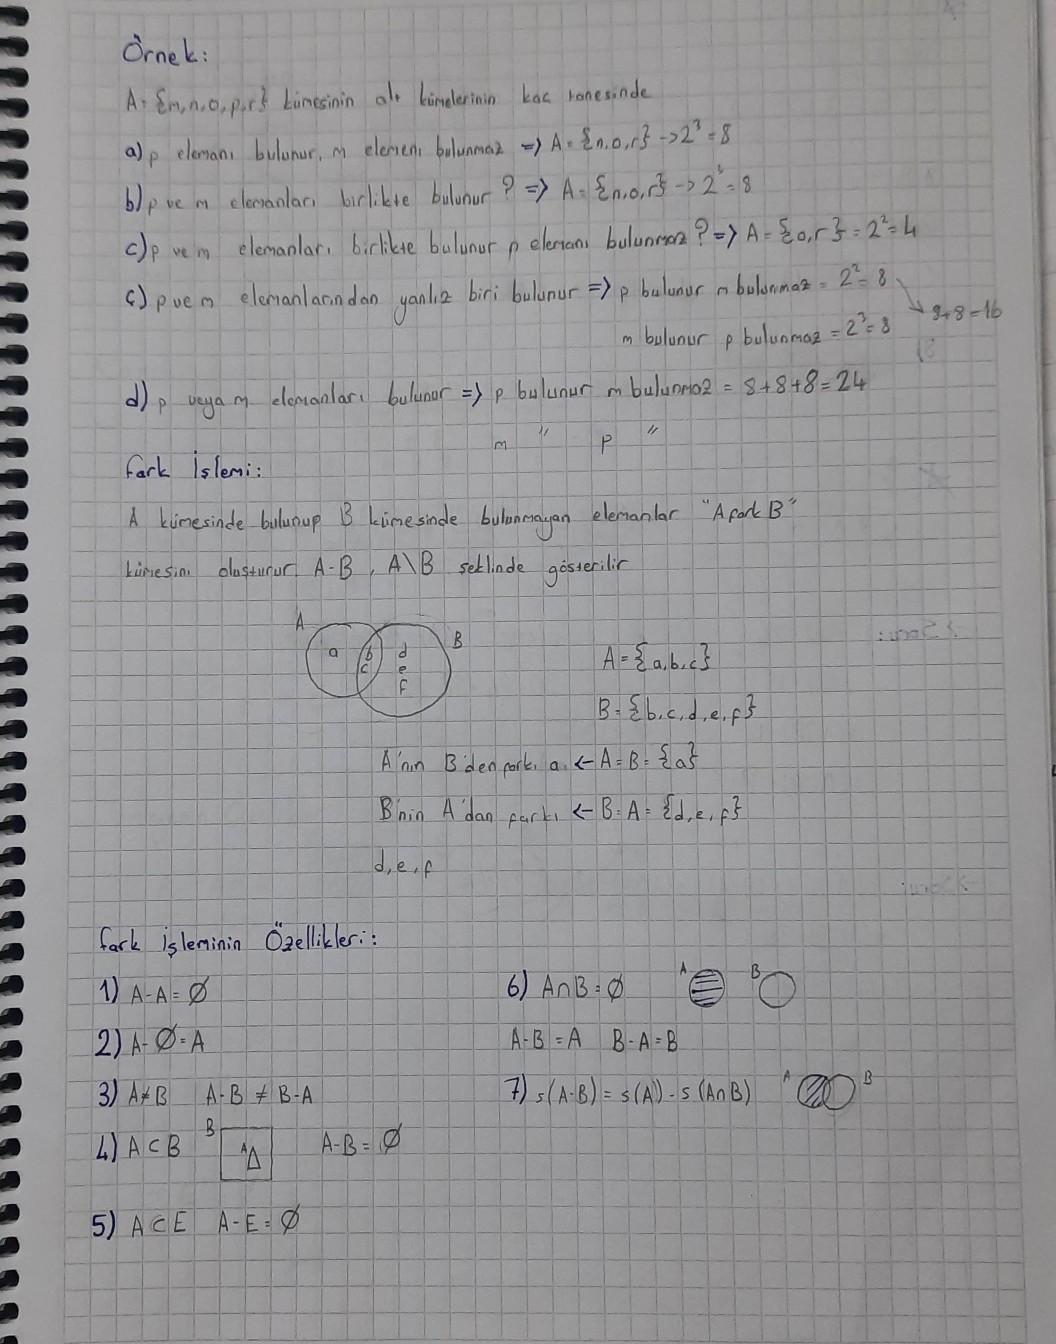 Örnek:
A= {m,n,o,p,r} kümesinin alt kümelerinin kaç tanesinde
a) p elemanı bulunur, m elemenı bulunmaz => A = {n,o,r} -> 2³ = 8
b) p ve m elemanları birlikte bulunur ? => A = {n,o,r} -> 2³ = 8
c) p ve m elemanları birlikte bulunur p elemanı bulunmaz ? => A = {o,r} = 2² = 4
ç) p ve m elemanlarından yanlız biri bulunur => p bulunur m bulunmaz = 2² = 8
8+8=16
m bulunur p bulunmaz = 2³ = 8
d) p veya m elemanları bulunur => p bulunur m bulunmaz = 8+8+8=24
m " p "
Fark İşlemi:
A kümesinde bulunup B kümesinde bulunmayan elemanlar "A fark B"
kümesini oluşturur. A-B , A\B şeklinde gösterilir
A B
a b d
c e
f
A = {a,b,c}
B = {b,c,d,e,f}
A'nın B'den farkı a <- A = B = {a}
B'nin A'dan farkı <- B-A = {d,e,f}
d,e,f
Fark işleminin Özellikleri:
1) A-A = ∅
2) A-∅ = A
3) A≠B A-B ≠ B-A
4) A⊂B B A A-B = ∅
5) A⊂E A-E = ∅
6) A∩B = ∅ A B
A-B = A B-A = B
7) s(A-B) = s(A) - s(A∩B) A B